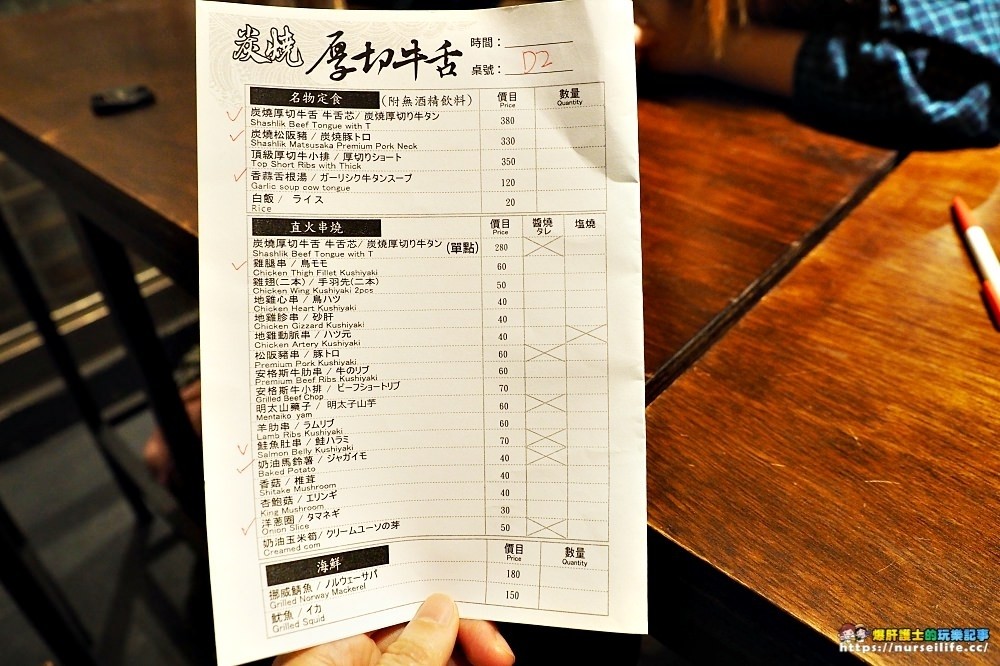 炭燒 厚切牛舌
時間：
桌號： D2
名物定食 (附無酒精飲料) 價目 數量
Price Quantity
炭燒厚切牛舌 牛舌芯/ 炭燒厚切り牛タン 380
Shashlik Beef Tongue with T
炭燒松阪豬 / 炭燒豚トロ 330
Shashlik Matsusaka Premium Pork Neck
頂級厚切牛小排 / 厚切りショート 350
Top Short Ribs with Thick
香蒜舌根湯 / ガーリシク牛タンスープ 120
Garlic soup cow tongue
白飯 / ライス 20
Rice
直火串燒 價目 醬燒 塩燒
Price タレ
炭燒厚切牛舌 牛舌芯/ 炭燒厚切り牛タン (單點) 280
Shashlik Beef Tongue with T
雞腿串 / 鳥モモ 60
Chicken Thigh Fillet Kushiyaki
雞翅(二本) / 手羽先(二本) 50
Chicken Wing Kushiyaki 2pcs
地雞心串 / 鳥ハツ 40
Chicken Heart Kushiyaki
地雞胗串 / 砂肝 40
Chicken Gizzard Kushiyaki
地雞動脈串 / ハツ元 40
Chicken Artery Kushiyaki
松阪豬串 / 豚トロ 60
Premium Pork Kushiyaki
安格斯牛肋串 / 牛のリブ 60
Premium Beef Ribs Kushiyaki
安格斯牛小排 / ビーフショートリブ 70
Grilled Beef Chop
明太山藥子 / 明太子山芋 60
Mentaiko yam
羊肋串 / ラムリブ 60
Lamb Ribs Kushiyaki
鮭魚肚串 / 鮭ハラミ 70
Salmon Belly Kushiyaki
奶油馬鈴薯 / ジャガイモ 40
Baked Potato
香菇 / 椎茸 40
Shitake Mushroom
杏鮑菇 / エリンギ 40
King Mushroom
洋蔥圈 / タマネギ 30
Onion Slice
奶油玉米筍/ クリームユーソの芽 50
Creamed corn
海鮮 價目 數量
Price Quantity
挪威鯖魚 / ノルウェーサバ 180
Grilled Norway Mackerel
魷魚 / イカ 150
Grilled Squid
爆肝護士的玩樂記事
https://nurseilife.cc/